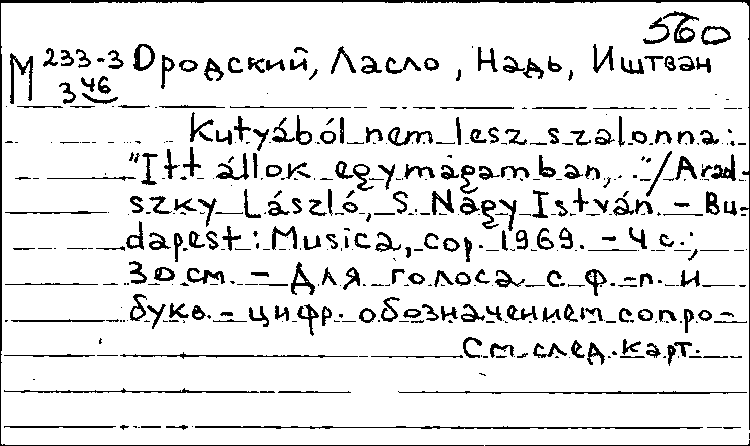 560
М 233-3 Ородский, Ласло, Надь, Иштван
3 46
Kutyából nem lesz szalonna:
"Itt állok egymagamban,.."/Arad-
szky László, S. Nagy István. - Bu-
dapest: Musica, cop. 1969. - 4 с.;
30 см. - Для голоса с ф.-п. и
букв.-цифр. обозначением сопро-
См. след. карт.